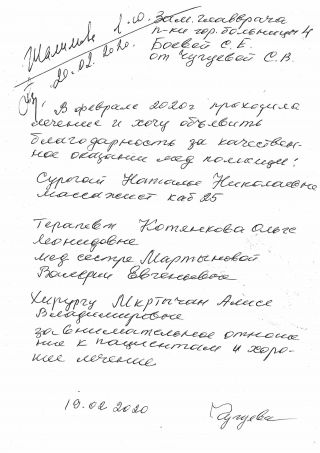 Шалимова Л.Ю.
20.02.2020.
Зам. главврача
п-ки гор. больницы 4
Боевой С.Е.
от Чугуевой С.В.
В феврале 2020г проходила
лечение и хочу объявить
благодарность за качествен-
ное оказание мед помощи:
Сурогой Наталье Николаевне
массажист каб 25
Терапевт Котянкова Ольге
Леонидовне
мед сестре Мартыновой
Валерии Евгеньевне
Хирургу Мкртычан Алисе
Владимировне
за внимательное отноше
ние к пациентам и хоро-
шее лечение
19.02 2020
Чугуева